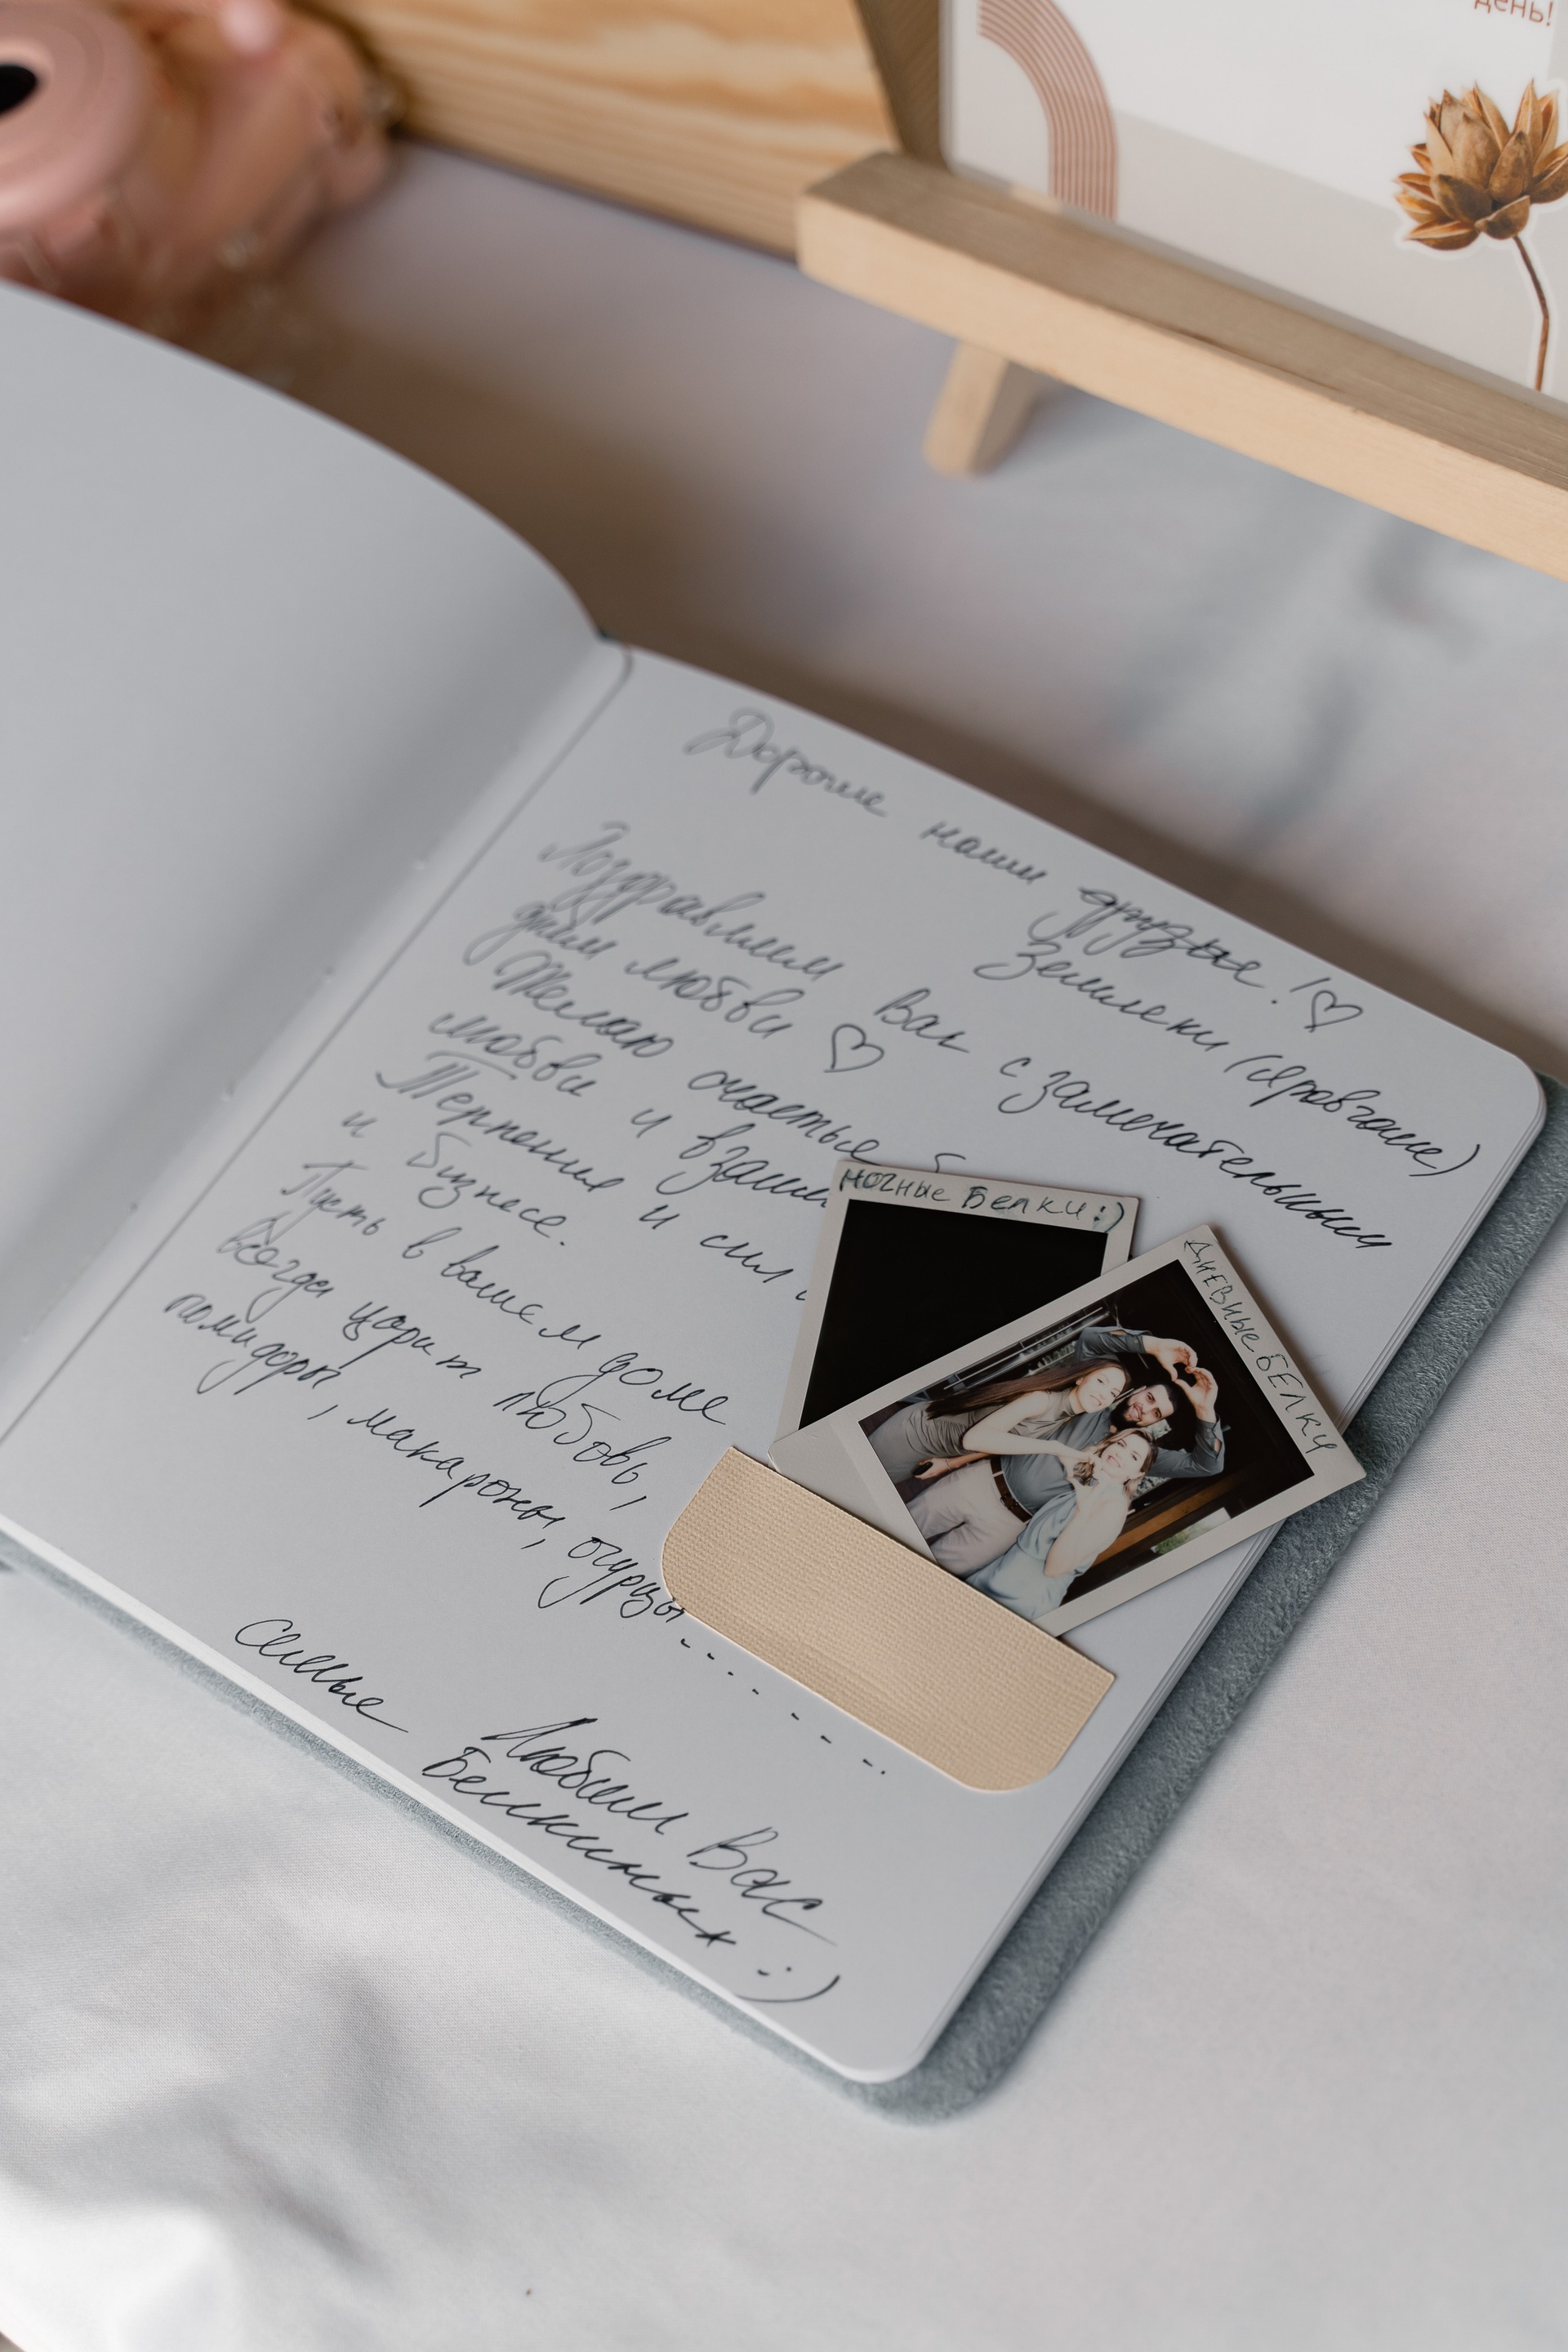 день!
Дорогие наши друзья!♡
Земляки
Поздравляем Вас с замечательным
днём любви ♡
Желаю счастья
любви и взаим
Терпения и сил
и бизнесе.
Пусть в вашем доме
всегда царит любовь,
помидоры, макароны, огурцы.......
Любим Вас
семья Белкиных :)
ночные Белки :)
дневные белки